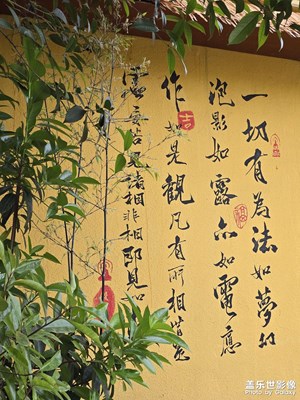 一切有為法如夢幻
泡影如露亦如電應
作如是觀凡有所相皆是
虛妄若見諸相非相即見如
吉
盖乐世影像
Photo by Galaxy